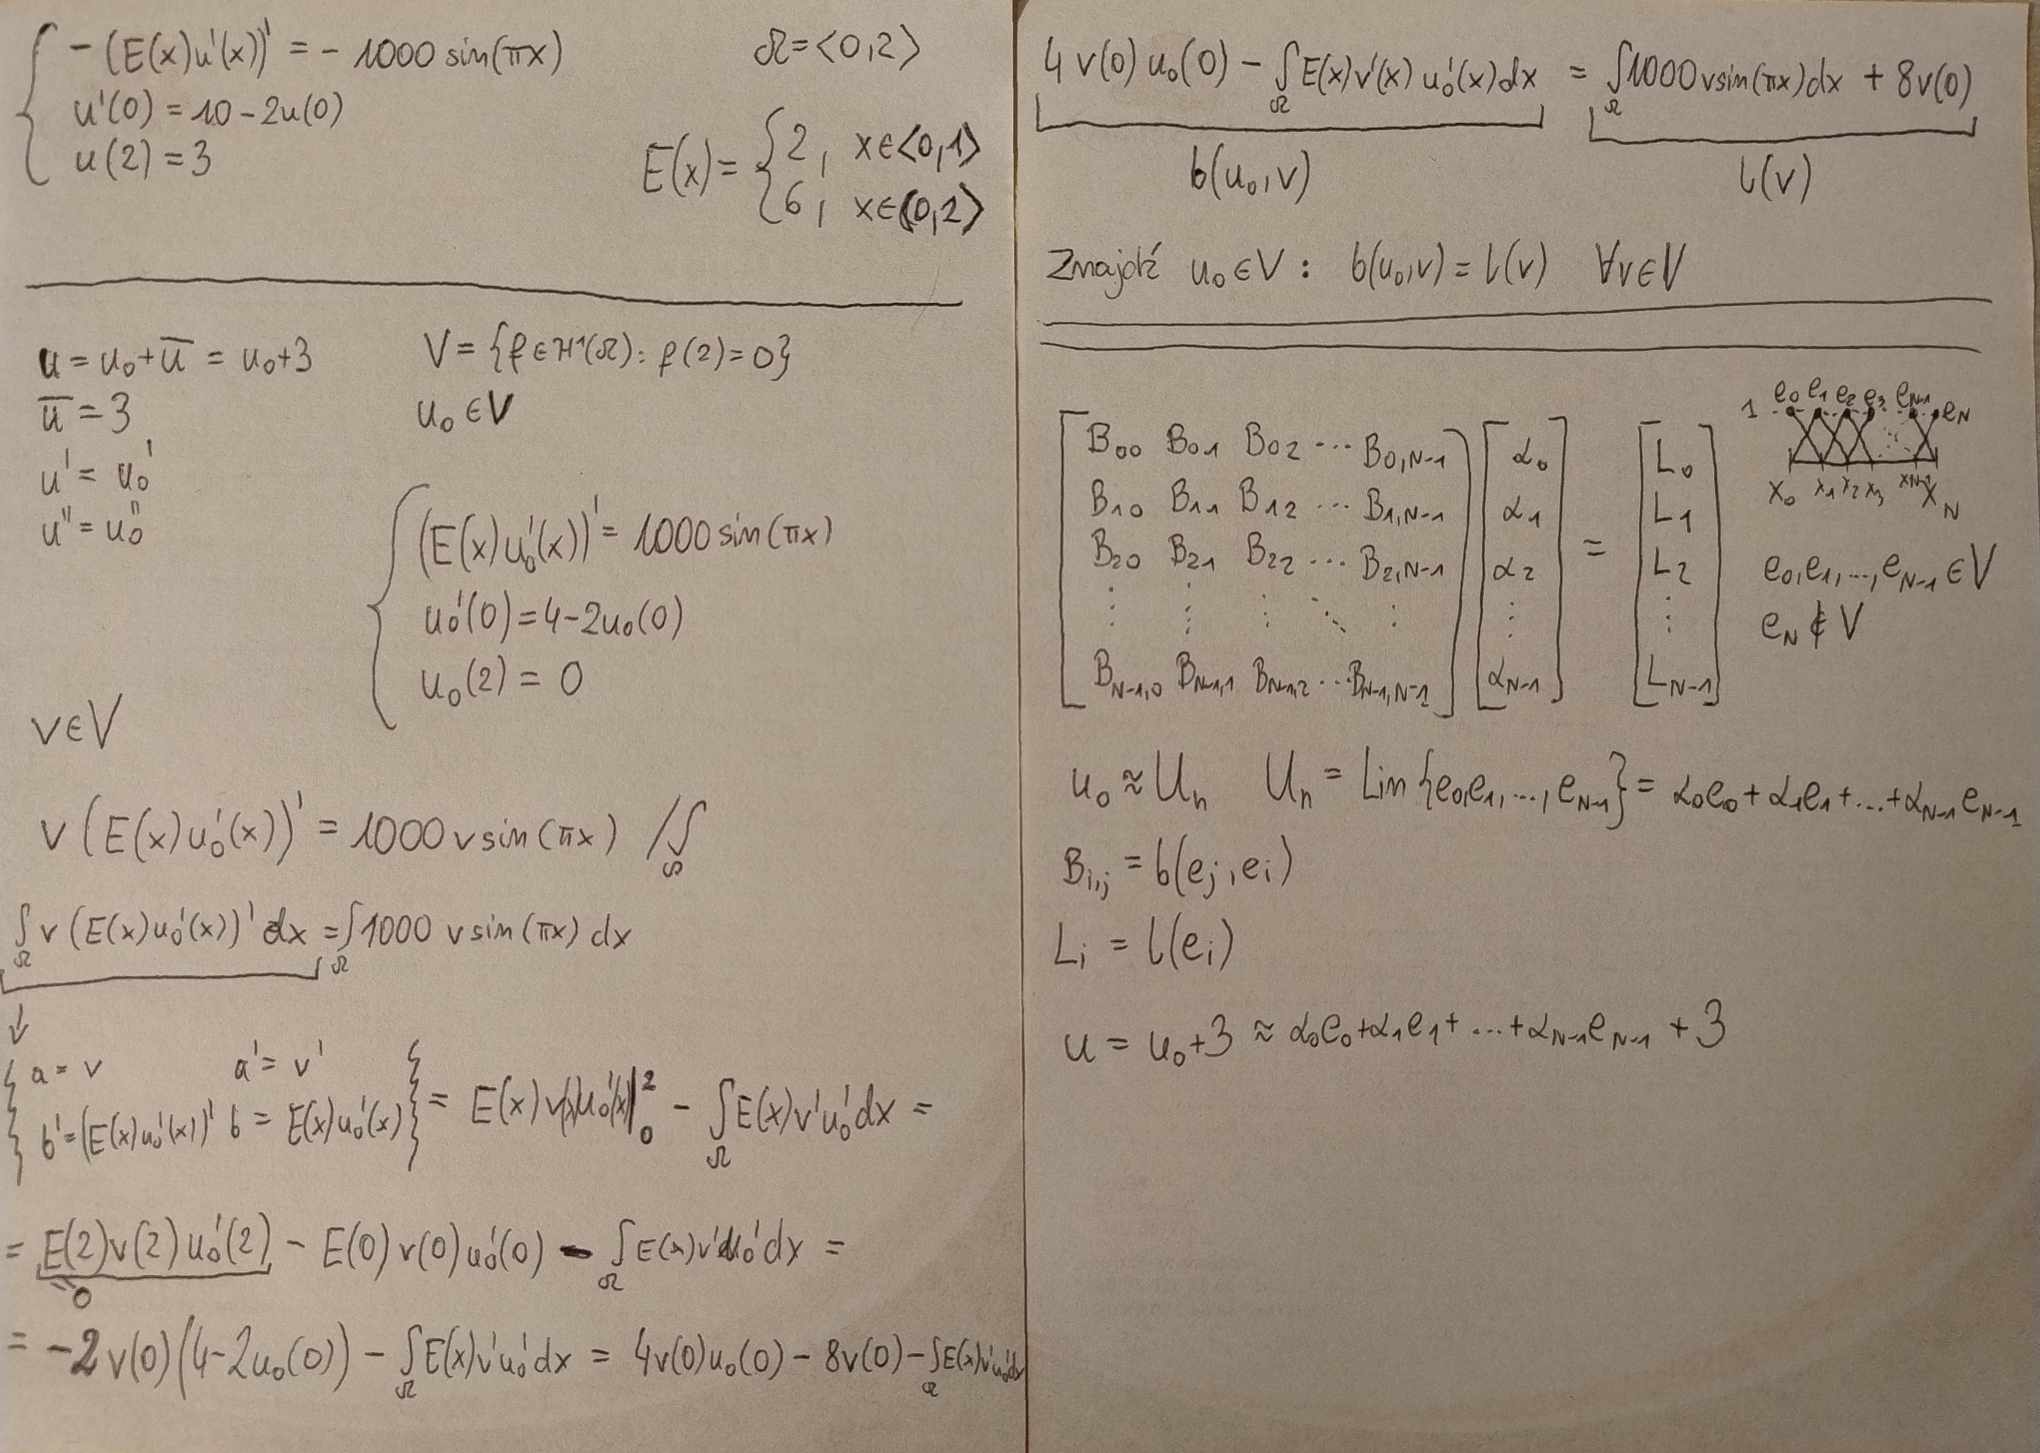 -(E(x)u'(x))' = -1000 sin(πx)
u'(0) = 10-2u(0)
u(2) = 3
Ω=<0,2>
E(x)= { 2, x∈<0,1>
6, x∈(0,2>
u = u₀+ū = u₀+3
ū = 3
u' = u₀'
u" = u₀"
V = {f∈H¹(Ω): f(2)=0}
u₀∈V
(E(x)u₀'(x))' = 1000 sin(πx)
u₀'(0)=4-2u₀(0)
u₀(2) = 0
v∈V
v(E(x)u₀'(x))' = 1000 v sin(πx) /∫Ω
∫Ω v(E(x)u₀'(x))' dx = ∫Ω 1000 v sin(πx) dx
↓
{ a = v a' = v'
b'=(E(x)u₀'(x))' b = E(x)u₀'(x) } = E(x)v(x)u₀'(x)|₀² - ∫Ω E(x)v'u₀'dx =
= E(2)v(2)u₀'(2) - E(0)v(0)u₀'(0) - ∫Ω E(x)v'u₀'dx =
=0
= -2v(0)(4-2u₀(0)) - ∫Ω E(x)v'u₀'dx = 4v(0)u₀(0) - 8v(0) - ∫Ω E(x)v'u₀'dx
4v(0)u₀(0) - ∫Ω E(x)v'(x)u₀'(x)dx = ∫Ω 1000vsin(πx)dx + 8v(0)
b(u₀,v) l(v)
Znajdź u₀∈V: b(u₀,v) = l(v) ∀v∈V
B₀₀ B₀₁ B₀₂ ... B₀,N-1 α₀ L₀
B₁₀ B₁₁ B₁₂ ... B₁,N-1 α₁ = L₁
B₂₀ B₂₁ B₂₂ ... B₂,N-1 α₂ L₂
⋮ ⋮ ⋮ ⋱ ⋮ ⋮ ⋮
B_N-1,0 B_N-1,1 B_N-1,2 ... B_N-1,N-1 α_N-1 L_N-1
e₀ e₁ e₂ e₃ e_N-1
1 e_N
x₀ x₁ x₂ x₃ x_N-1 x_N
e₀,e₁,...,e_N-1 ∈V
e_N ∉ V
u₀ ≈ U_n U_n = Lin{e₀,e₁,...,e_N-1} = α₀e₀+α₁e₁+...+α_N-1 e_N-1
B_i,j = b(e_j, e_i)
L_i = l(e_i)
u = u₀+3 ≈ α₀e₀+α₁e₁+...+α_N-1 e_N-1 + 3